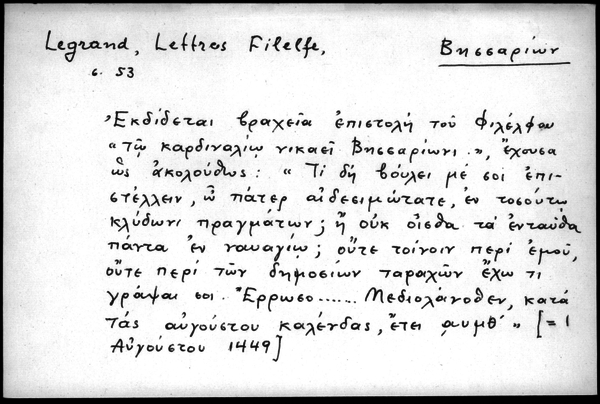 Legrand, Lettres Filelfe,
Βησσαρίων
σ. 53
Ἐκδίδεται βραχεῖα ἐπιστολή τοῦ Φιλέλφου
«τῷ καρδιναλίῳ νικαεῖ Βησσαρίωνι.», ἔχουσα
ὧς ἀκολούθως: «Τί δή βούλει μέ σοί ἐπι-
στέλλειν, ὦ πάτερ αἰδεσιμώτατε, ἐν τοσούτῳ
κλύδωνι πραγμάτων; ἤ οὐκ οἶσθα τά ἐνταῦθα
πάντα ἐν ναυαγίῳ; οὔτε τοίνοιν περί ἐμοῦ,
οὔτε περί τῶν δημοσίων ταραχῶν ἔχω τι
γράψαι σοι. Ἔρρωσο...... Μεδιολάνοθεν, κατά
τάς αὐγούστου καλένδας, ἔτει αυμθ´» [= 1
Αὐγούστου 1449]